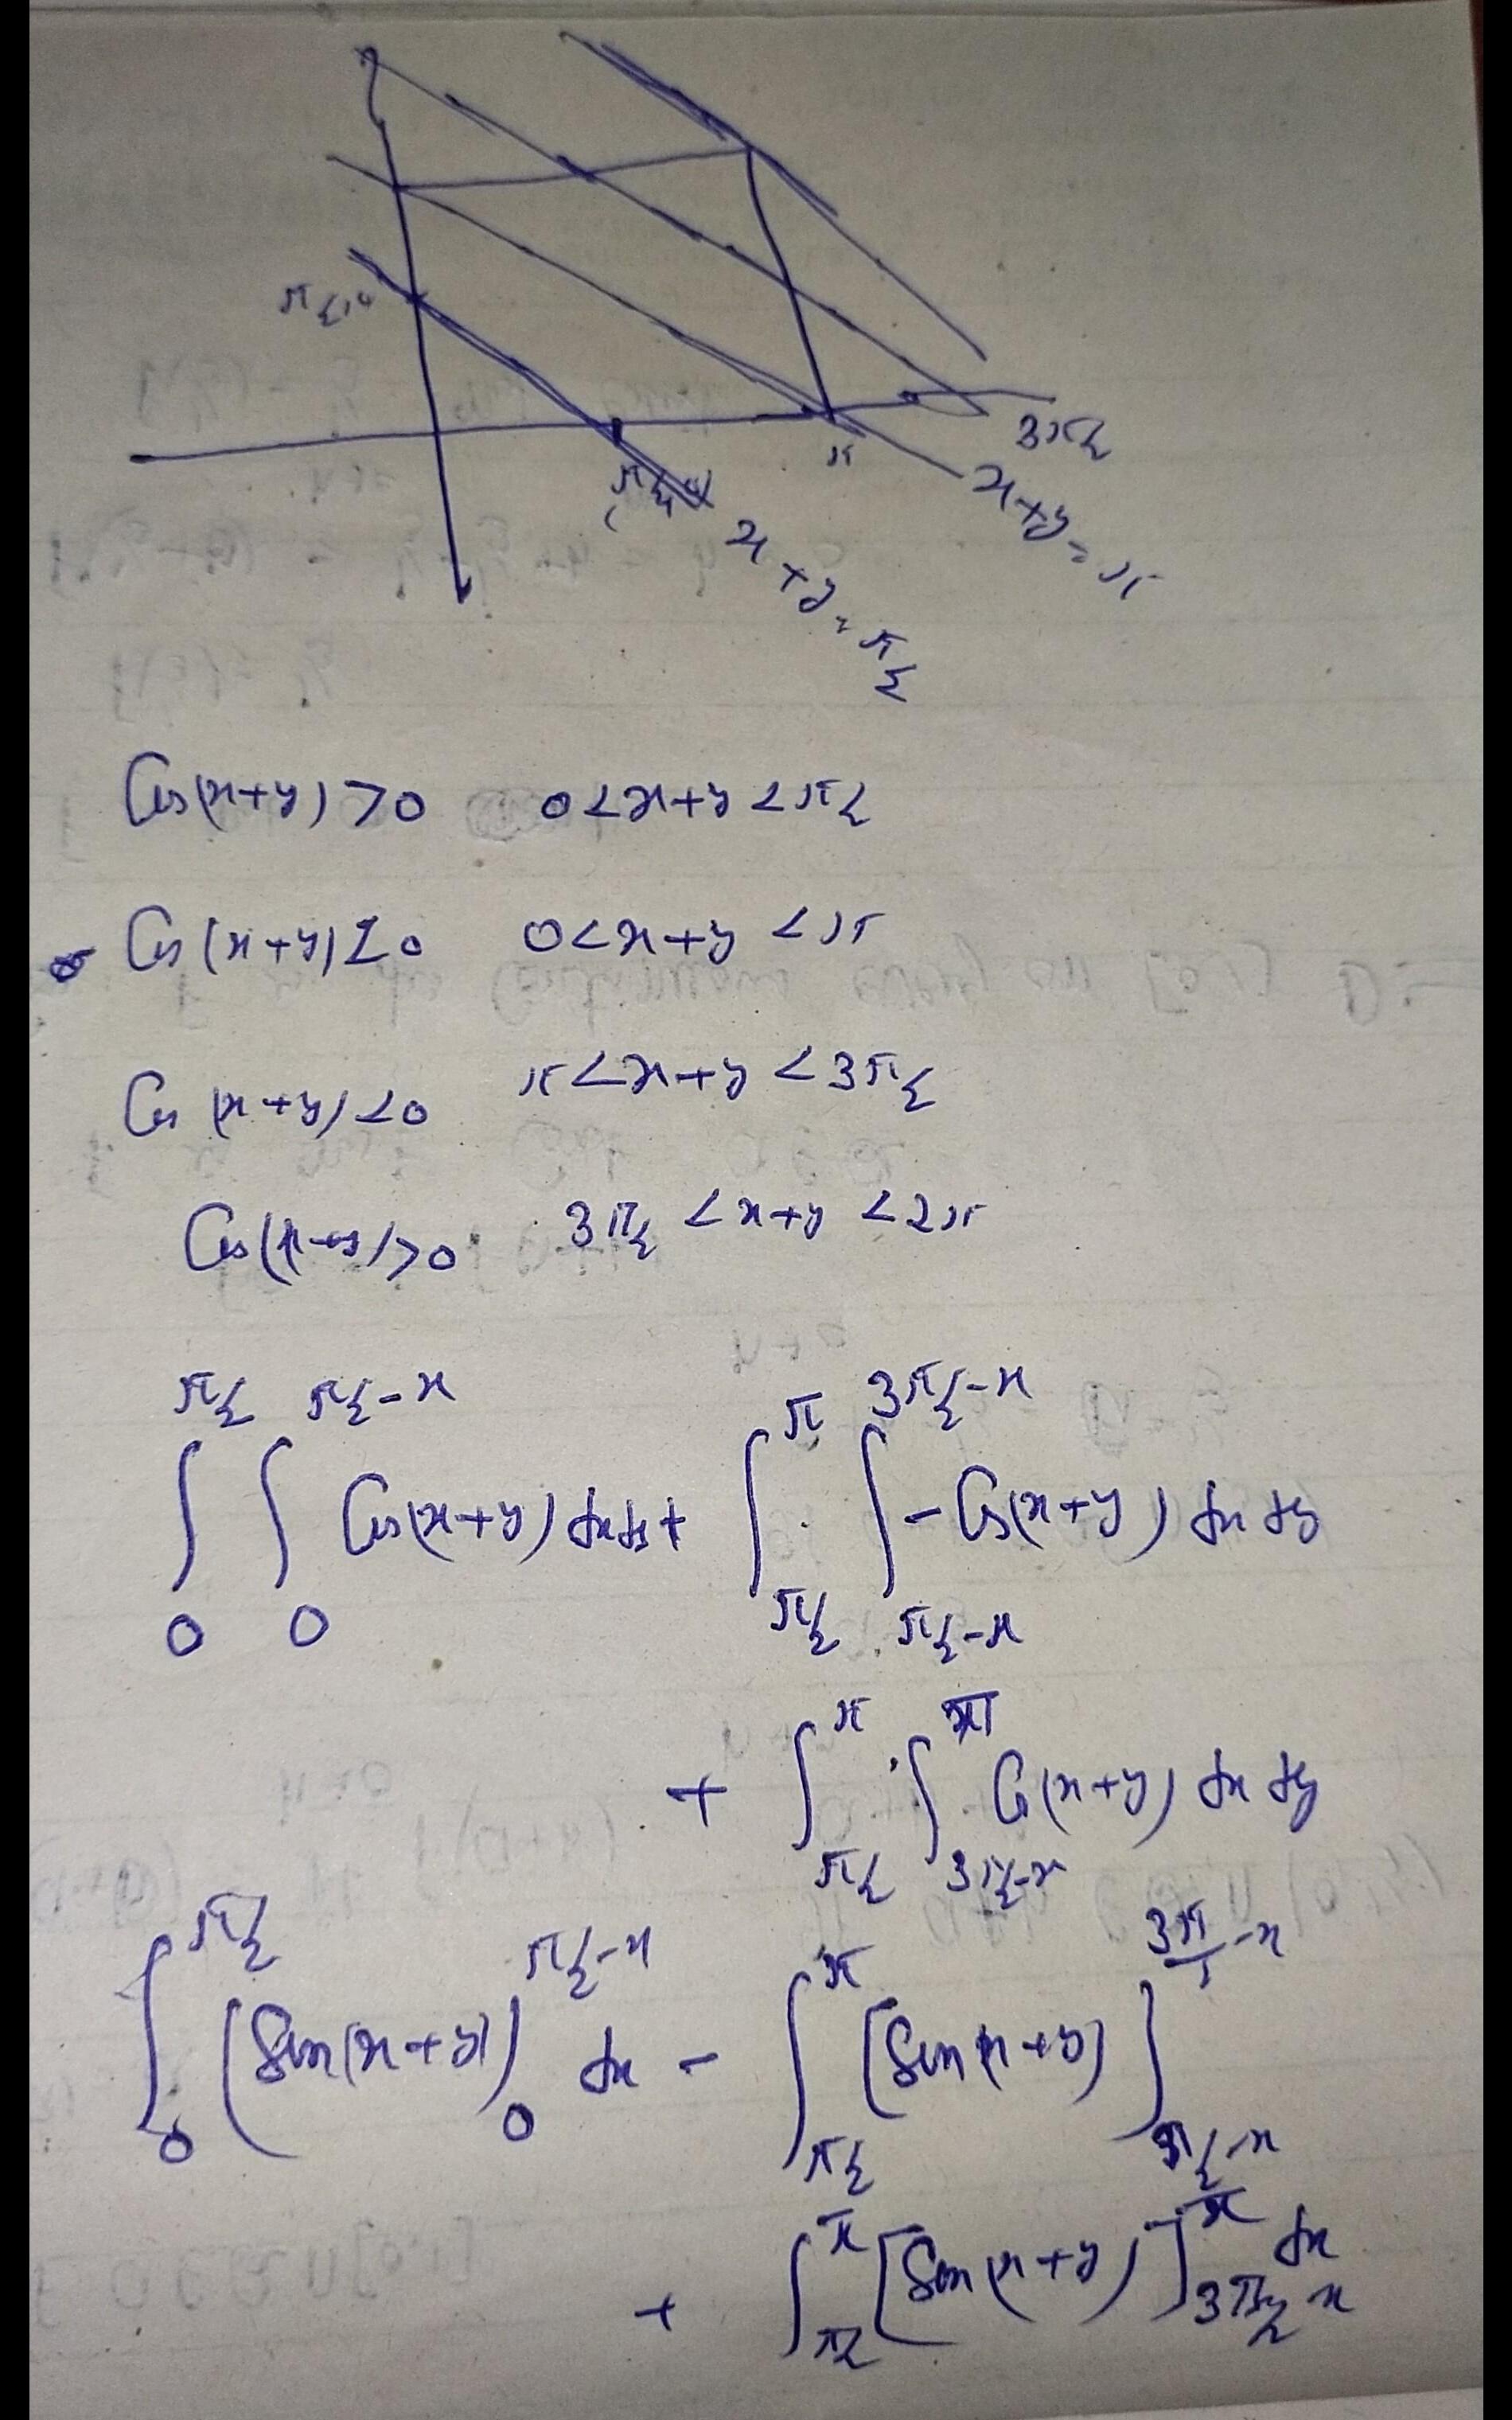 π/2
π/2
π
3π/2
x+y=π
x+y=π/2
Cos(x+y)>0 0<x+y<π/2
Cos(x+y)<0 0<x+y<π
Cos(x+y)<0 π<x+y<3π/2
Cos(x+y)>0 3π/2<x+y<2π
∫_0^{π/2} ∫_0^{π/2-x} Cos(x+y) dxdy + ∫_{π/2}^{π} ∫_{π/2-x}^{3π/2-x} -Cos(x+y) dx dy
+ ∫_{π/2}^{π} ∫_{3π/2-x}^{π} Cos(x+y) dx dy
∫_0^{π/2} (Sin(x+y))_0^{π/2-x} dx - ∫_{π/2}^{π} [Sin(x+y)]_{π/2-x}^{3π/2-x}
+ ∫_{π/2}^{π} [Sin(x+y)]_{3π/2-x}^{π} dx